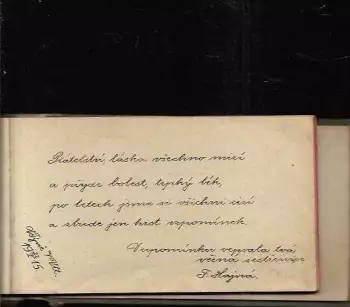 Přátelství, láska všechno mizí
a přijde bolest, trpký lék,
po letech jsme si všichni cizí
a zbude jen hrst vzpomínek.
Vupomínku vepsala tvá
věčná
F. Hájová.